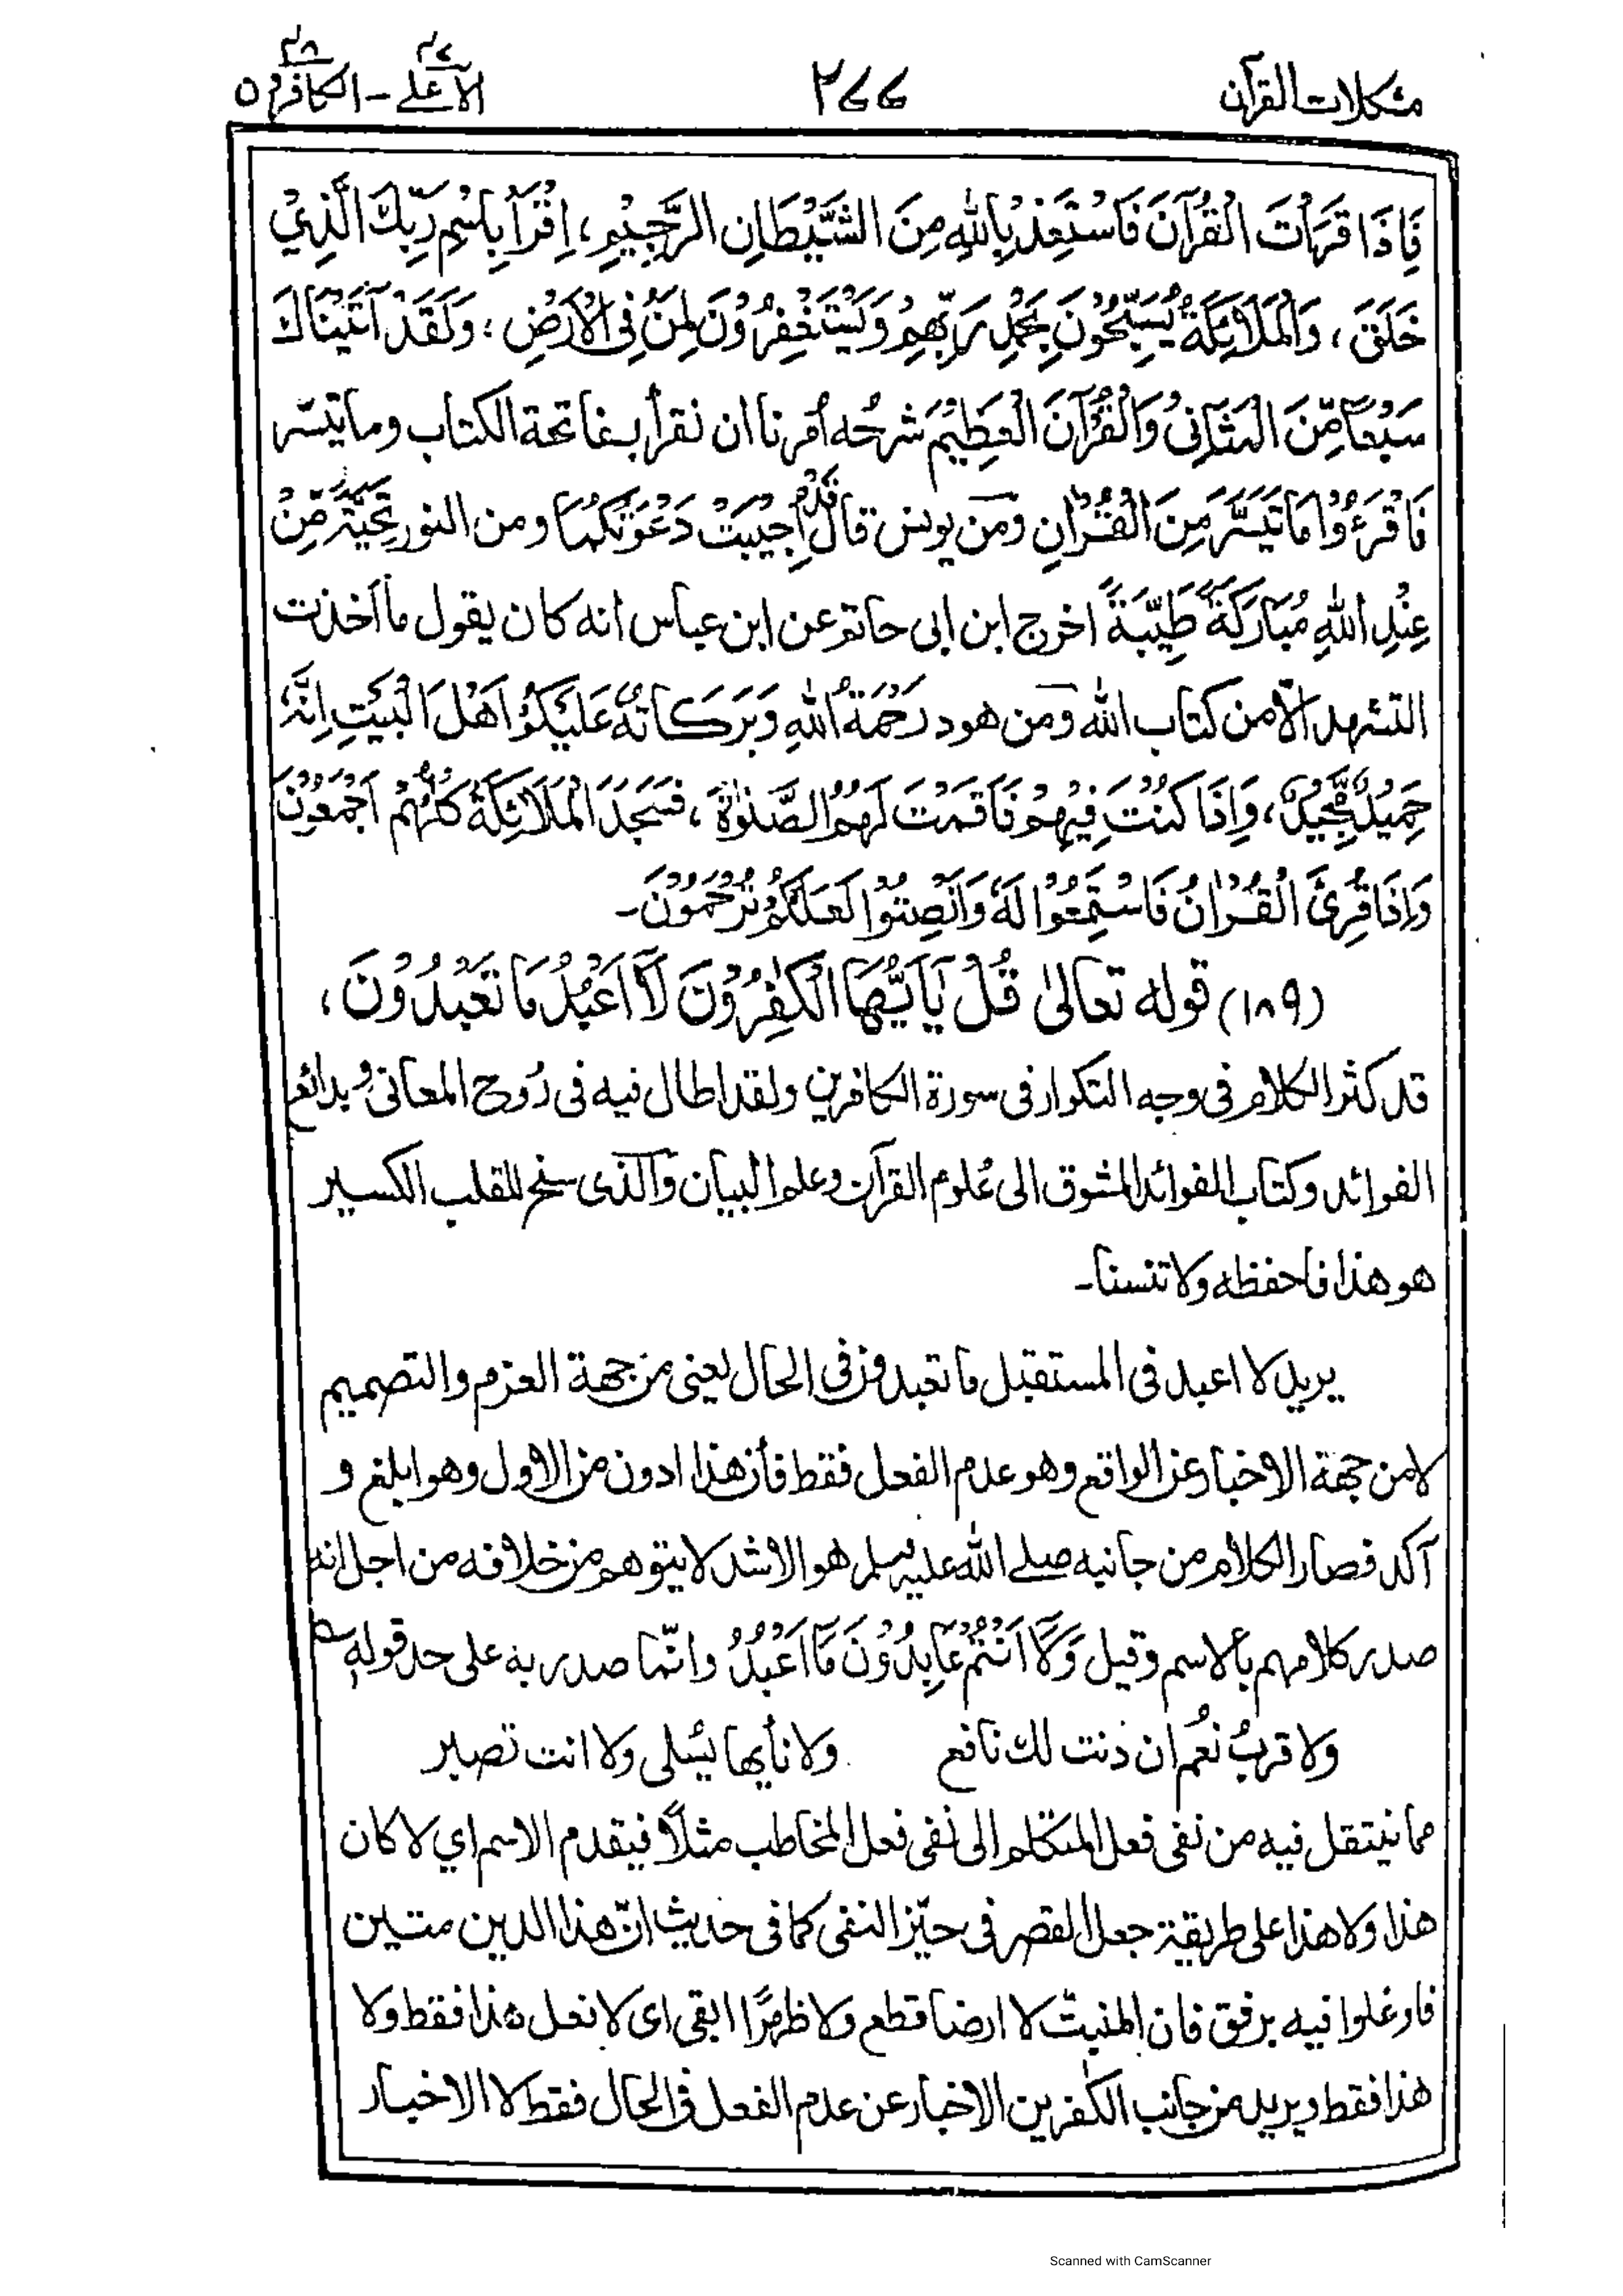 مشكلات القرآن ٢٧٧ الأعلى - الكافرون
فَإِذَا قَرَأْتَ الْقُرْآنَ فَاسْتَعِذْ بِاللهِ مِنَ الشَّيْطَانِ الرَّجِيْمِ، اِقْرَأْ بِاسْمِ رَبِّكَ الَّذِيْ
خَلَقَ، وَالْمَلَائِكَةُ يُسَبِّحُوْنَ بِحَمْدِ رَبِّهِمْ وَيَسْتَغْفِرُوْنَ لِمَنْ فِى الْاَرْضِ، وَلَقَدْ آتَيْنَاكَ
سَبْعًا مِّنَ الْمَثَانِىْ وَالْقُرْآنَ الْعَظِيْمَ شرحُه اُمرنا ان نقرأ بفاتحة الكتاب وما تيسّر
فَاقْرَءُوْا مَا تَيَسَّرَ مِنَ الْقُرْاٰنِ ومن يونس قال قَدْ اُجِيْبَتْ دَعْوَتُكُمَا ومن النور تَحِيَّةً مِّنْ
عِنْدِ اللهِ مُبَارَكَةً طَيِّبَةً اخرج ابن ابى حاتم عن ابن عباس انه كان يقول ما اخذت
التشهد الّا من كتاب الله ومن هود رَحْمَةُ اللهِ وَبَرَكَاتُهٗ عَلَيْكُمْ اَهْلَ الْبَيْتِ اِنَّهٗ
حَمِيْدٌ مَّجِيْدٌ، وَاِذَا كُنْتَ فِيْهِمْ فَاَقَمْتَ لَهُمُ الصَّلٰوةَ، فَسَجَدَ الْمَلَائِكَةُ كُلُّهُمْ اَجْمَعُوْنَ
وَاِذَا قُرِئَ الْقُرْاٰنُ فَاسْتَمِعُوْا لَهٗ وَاَنْصِتُوْا لَعَلَّكُمْ تُرْحَمُوْنَ۔
(١٨٩) قوله تعالىٰ قُلْ يٰاَيُّهَا الْكٰفِرُوْنَ لَآ اَعْبُدُ مَا تَعْبُدُوْنَ،
قد كثر الكلام فى وجه التكرار فى سورة الكافرين ولقد اطال فيه فى رُوح المعانى وبدائع
الفوائد وكتاب الفوائد المشوق الى عُلوم القرآن وعلم البيان والذى سنح للقلب الكسير
هو هذا فاحفظه ولا تنسنا۔
يريد لا اعبد فى المستقبل ما تعبدون فى الحال يعنى من جهة العزم والتصميم
لا من جهة الاخبار عن الواقع وهو عدم الفعل فقط فأن هذا ادون من الاول وهو ابلغ و
آكد فصار الكلام من جانبه صلے الله عليه وسلم هو الاشد لا يتوهم من خلافه من اجل انه
صدر كلامهم بألاسم وقيل وَلَآ اَنْتُمْ عَابِدُوْنَ مَآ اَعْبُدُ وانّما صدر به على حد قوله
ولا قربُ نُعم ان دنت لك نافع ولا نأيها يُسلى ولا انت تصبر
مما ينتقل فيه من نفى فعل المتكلم الى نفى فعل المخاطب مثلًا فيقدم الاسم اي لا كان
هذا ولا هذا على طريقة جعل القصر فى حيّز النفى كما فى حديث انّ هذا الدين متين
فاوغلوا فيه برفق فان المنبتّ لا ارضا قطع ولا ظهرًا ابقى اى لا نعل هذا فقط ولا
هذا فقط ويريد من جانب الكٰفرين الاخبار عن عدم الفعل فى الحال فقط لا الاخبار
Scanned with CamScanner